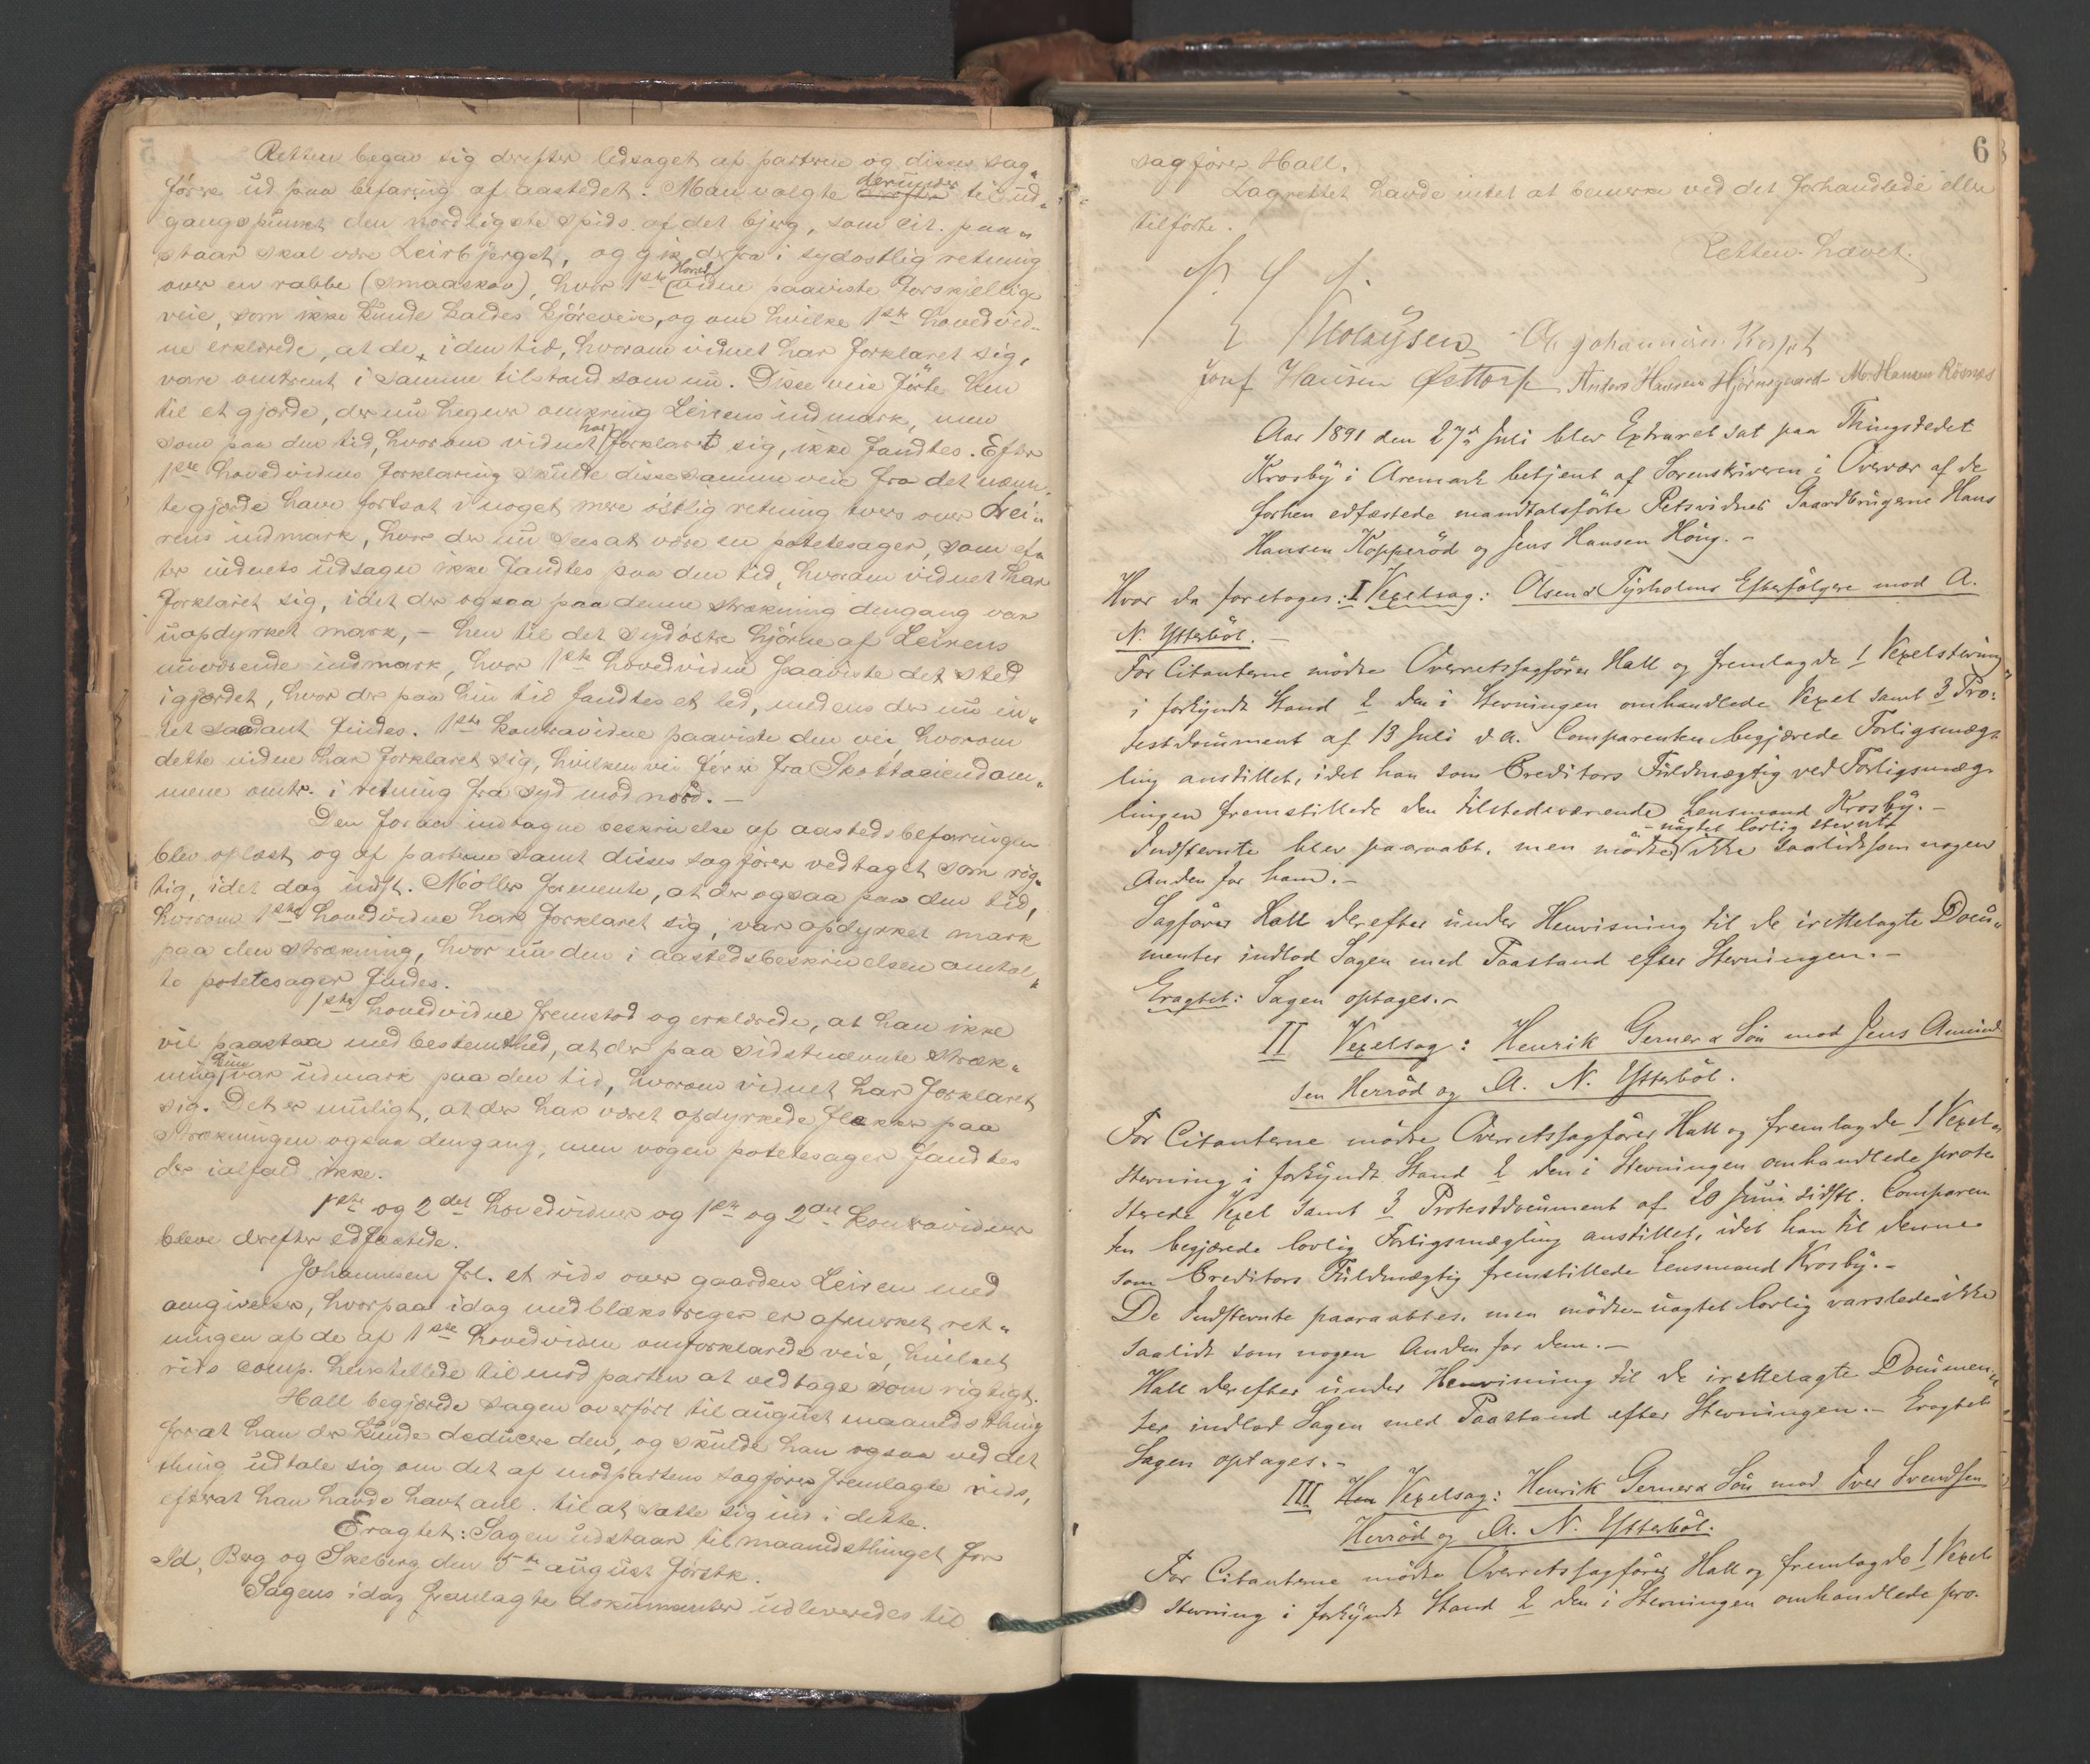 Retten begav sig derefter ledsaget af parterne og disses sag„
förere ud paa befaring af aastedet. Man valgte derunder til ud„
gangspunkt den nordligste spids af det bjerg, som cit. paa„
staar skal være Leirbjerget, og gik derfra i sydostlig retning
over en rabbe (smaaskov), hvor 1ste Hoved vidne paaviste forskjellige
veie, som ikke kunde kaldes kjöreveie, og om hvilke 1ste hovedvid„
ne erklærede, at de, i den tid, hvorom vidnet har forklaret sig,
vare omtrent i samme tilstand som nu. Disse veie förte hen
til et gjærde, der nu hegner omkring Leirens indmark, men
som paa den tid, hvorom vidnet har forklaret sig, ikke fandtes. Efter
1ste hovedvidnes forklaring skulde disse samme veie fra det nævn„
te gjerde have fortsat i noget mere östlig retning tvers over Lei„
rens indmark, hvor der nu sees at være en potetesager, som ef„
ter vidnets udsagn ikke fandtes paa den tid, hvorom vidnet har
forklaret sig, idet der ogsaa paa denne strækning dengang var
uopdyrket mark, – hen til det sydöstre hjörne af Leirens
nuværende indmark, hvor 1ste hovedvidne paaviste det sted
i gjærdet, hvor der paa hin tid fandtes et led, medens der nu in„
tet saadant findes. 1ste kontravidne paaviste den vei, hvorom
dette vidne har forklaret sig, hvilken vei förer fra Skottaeiendom„
mene omtr. i retning fra syd mod nord. –
Den foran indtagne beskrivelse af aastedsbefaringen
blev oplæst og af parterne samt disses sagförer vedtaget som rig„
tig, idet dog indst. Möller formente, at der ogsaa paa den tid,
hvorom 1ste hovedvidne har forklaret sig, var opdyrket mark
paa den strækning, hvor nu den i aastedsbeskrivelsen omtal„
te potetesager findes.
1ste hovedvidne fremstod og erklærede, at han ikke
vil paastaa med bestemthed, at der paa sidstnævnte stræk„
ning kun var udmark paa den tid, hvorom vidnet har forklaret
sig. Det er muligt, at der har været opdyrkede flekker paa
strækningen ogsaa dengang, men nogen potetesager fandtes
der ialfald ikke.
1ste og 2det hovedvidner og 1ste og 2det kontravidner
bleve derefter edfæstede.
Johannesen frl. et rids over gaarden Leiren med
omgivelser, hvorpaa idag med blækstreger er afmerket ret„
ningen af de af 1ste hovedvidne omforklarede veie, hvilket
rids comp. henstillede til modparten at vedtage som rigtigt.
Hall begjærede sagen overfört til august maanedsthing
forat han der kunde deducere den, og skulde han ogsaa ved det
thing udtale sig om det af modpartens sagförer fremlagte rids,
efterat han havde havt anl. til at sætte sig ind i dette.
Eragtet: Sagen udstaar til maanedsthinget for
Id, Berg og Skeberg den 5te august förstk.
Sagens idag fremlagte dokumenter udleveredes til
6
sagförer Hall.
Lagrettet havde intet at bemerke ved det forhandlede eller
tilförte.
Retten hævet.
Josef Hansen Anders Hansen Hjörnegaard M. Hansen Rösnæs
Aar 1891 den 27de Juli blev Extraret sat paa Thingstedet
Krosby i Aremark betjent af Sorenskriveren i Overvær af de
forhen edfæstede mandtalsförte Retsvidner Gaardbrugerne Hans
Hansen Kopperöd og Jens Hansen Höug. –
Hvor da foretoges: I Vexelsag: Olsen & Tyrholms Efterfölgere mod A.
N. Ytterböl. –
For Citanterne mödte Overretssagförer Hall og fremlagde 1 Vexelstevning
i forkyndt Stand 2 den i Stevningen omhandlede Vexel samt 3 Pro„
testdocument af 13 Juli d. A. Comparenten begjærede Forligsmæg„
ling anstillet, idet han som Creditors Fuldmægtig ved Forligsmæg„
lingen fremstillede den tilstedeværende Lensmand Krosby. –
– uagtet lovlig stevnt
Indstevnte blev paaraabt, men mödte ikke saalidt som nogen
Anden for ham. –
Sagförer Hall derefter under Henvisning til de irettelagte Docu„
menter indlod Sagen med Paastand efter Stevningen. –
Eragtet: Sagen optages. –
II Vexelsag: Henrik Gerner & Sön mod Jens Amund
sen Herröd og A. N. Ytterböl.
For Citanterne mödte Overretssagförer Hall og fremlagde 1 Vexel„
stevning i forkyndt Stand 2 den i Stevningen omhandlede prote
sterede Vexel samt 3 Protestdocument af 20 Juni sidstl. Comparen
ten begjærede lovlig Forligsmægling anstillet, idet han til denne
som Creditors Fuldmægtig fremstillede Lensmand Krosby. –
De Indstevnte paaraabtes, men mödte – uagtet lovlig varslede – ikke
saalidt som nogen Anden for dem. –
Hall derefter under Henvisning til de irettelagte Documen„
ter indlod Sagen med Paastand efter Stevningen. – Eragtet
Sagen optages. –
III Vexelsag: Henrik Gerner & Sön mod Iver Svendsen
Herröd og A. N. Ytterböl.
For Citanterne mödte Overretssagförer Hall og fremlagde 1 Vexel
stevning i forkyndt Stand 2 den i Stevningen omhandlede pro.